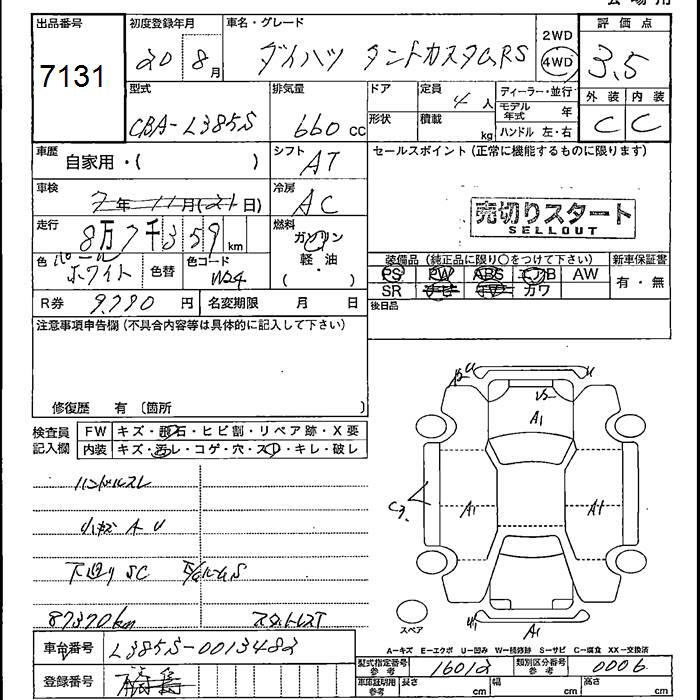 出品番号
7131
初度登録年月
20 8月
車名・グレード
ダイハツ タントカスタムRS
2WD
4WD
評価点
3.5
外装 内装
C C
型式
CBA-L385S
排気量
660 cc
ドア
形状
定員
4人
積載
kg
ディーラー・並行
モデル年式 年
ハンドル 左・右
車歴
自家用・( )
シフト
AT
セールスポイント(正常に機能するものに限ります)
売切りスタート
SELLOUT
車検
7年11月(21日)
冷房
AC
走行
8万7千359km
燃料
ガソリン
軽・油
( )
色
パールホワイト
色替
色コード
W24
装備品(純正品に限り○をつけて下さい)
PS PW ABS エアB AW
SR ナビ TV カワ
新車保証書
有・無
R券
9,790円
名変期限 月 日
後日品
注意事項申告欄(不具合内容等は具体的に記入して下さい)
修復歴 有〔箇所 〕
検査員
記入欄
FW キズ・飛石・ヒビ割・リペア跡・X要
内装 キズ・汚レ・コゲ・穴・スレ・キレ・破レ
ハンドルスレ
小キズ A U
下廻り SC
87370km
スタットレスT
A1
A1
A1
A1
スペア
A-キズ E-エクボ U-凹み W-補修跡 S-サビ C-腐食 XX-交換済
車台番号
L385S-0013482
登録番号
型式指定番号
参考
16012
類別区分番号
参考
0006
車庫証明用
参考
長さ cm
幅 cm
高さ cm